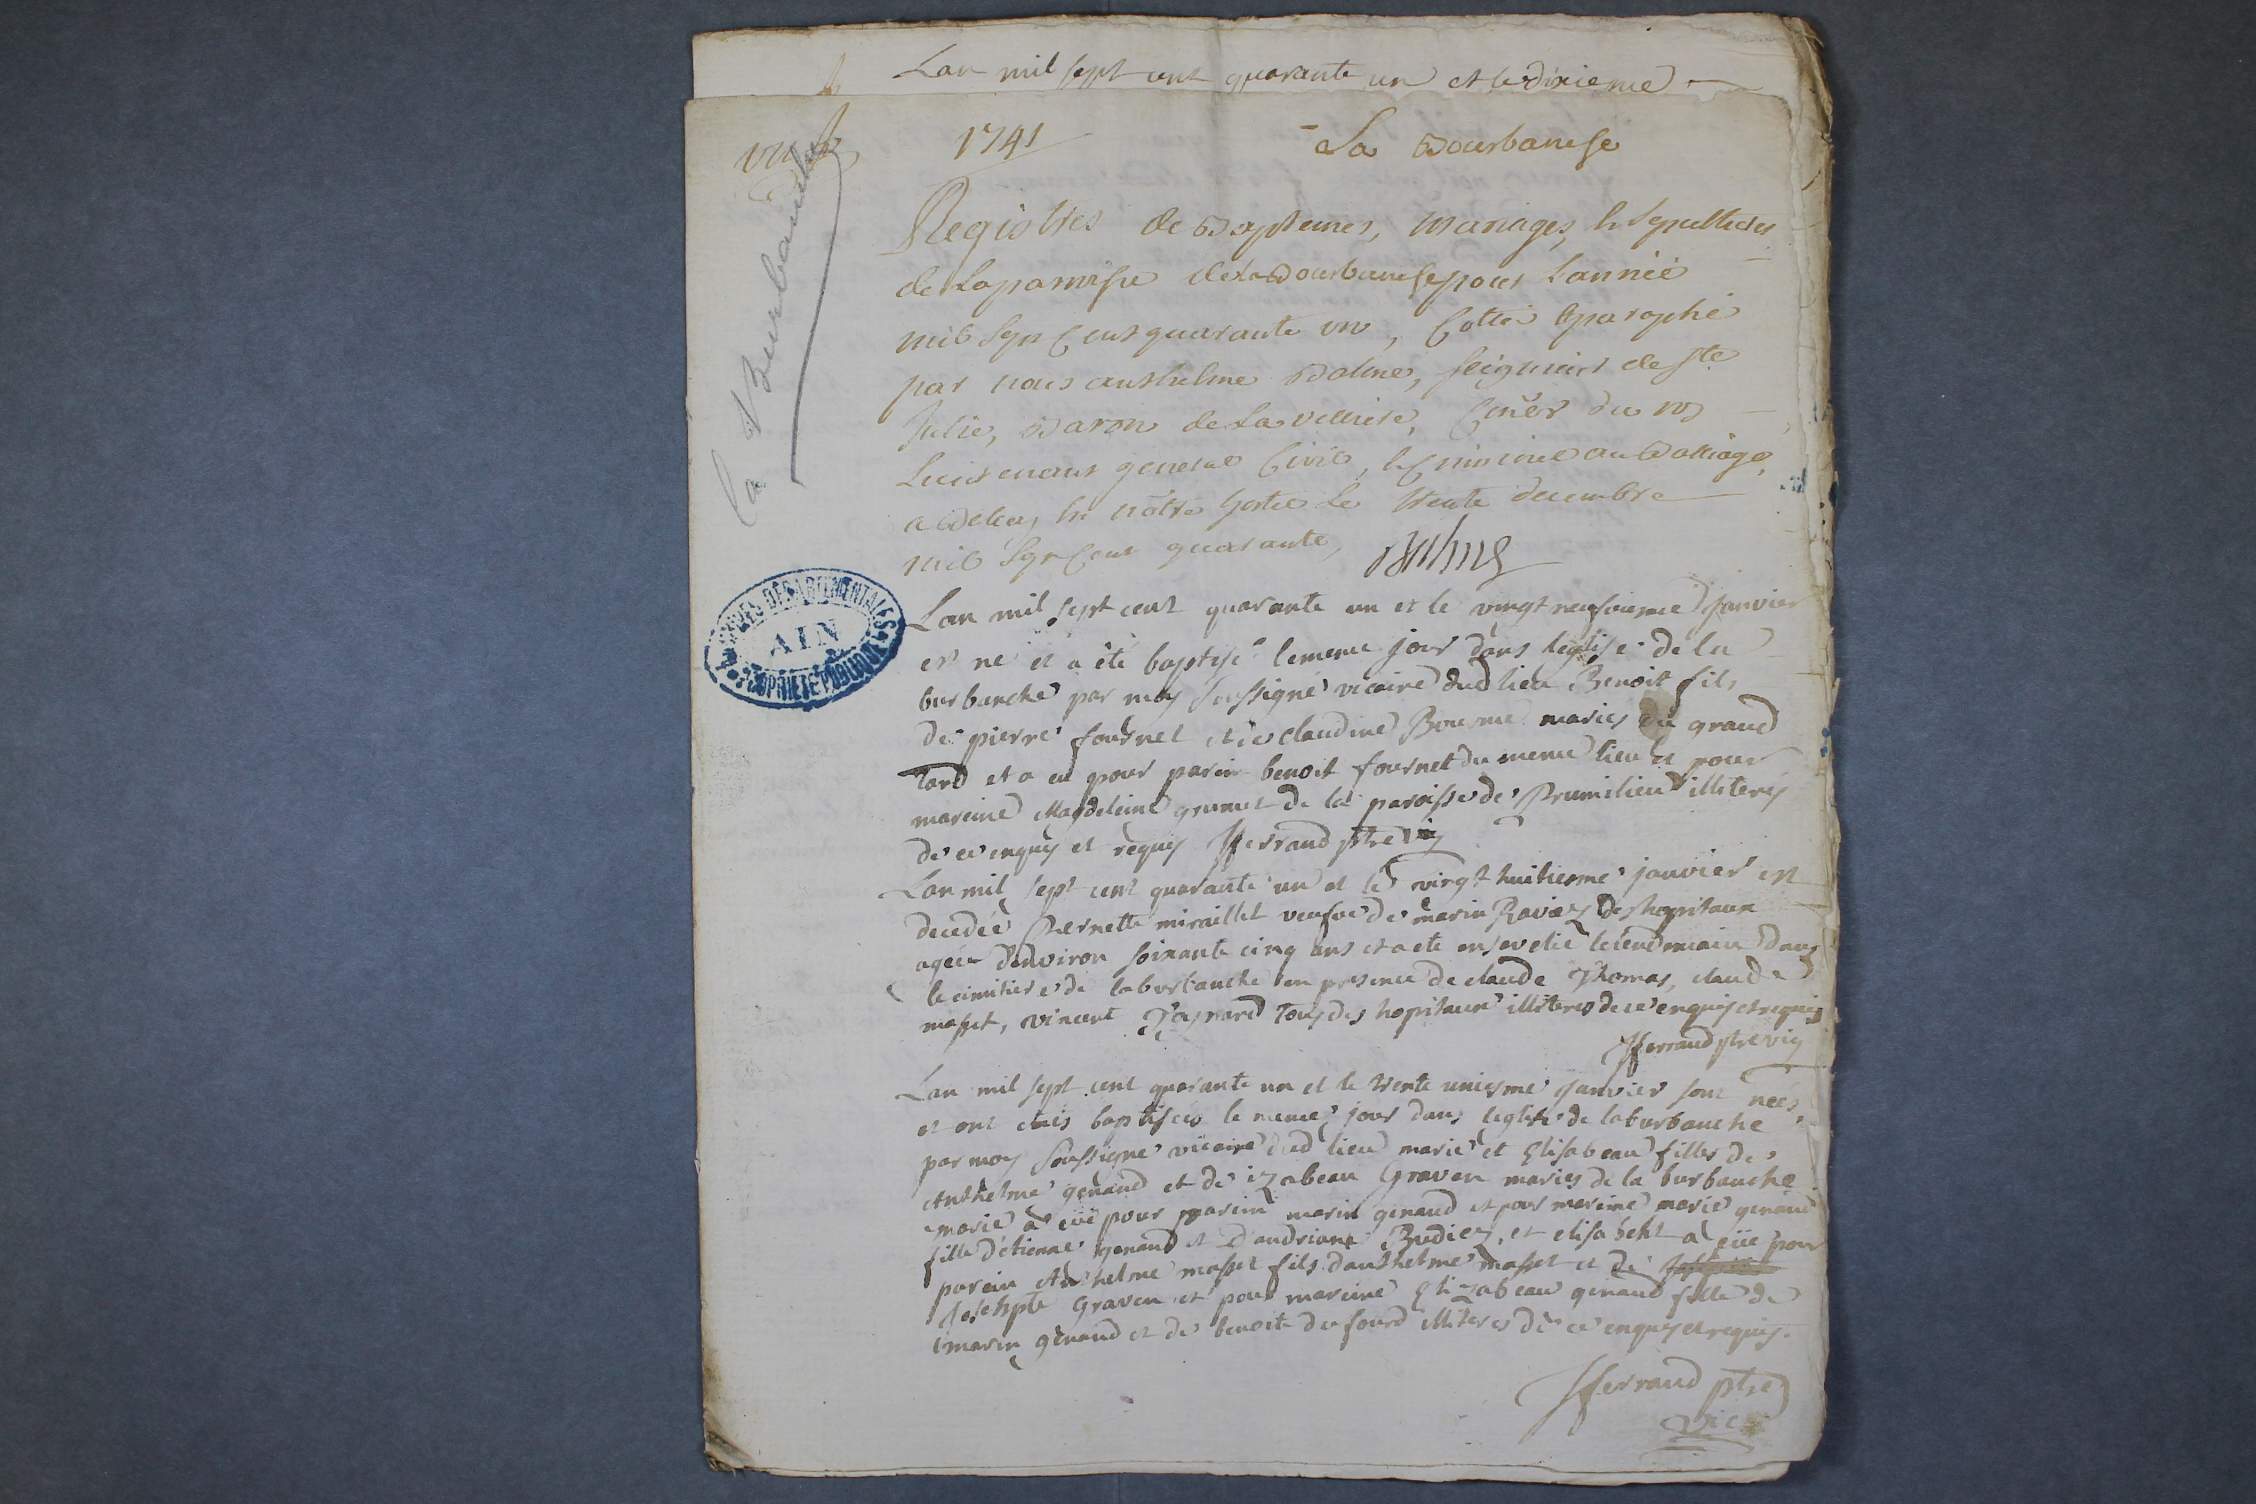 Lan mil sept cent quarante un et le dixieme
1741
La Bourbanche
La Burbanche
Registres de Baptemes, Mariages, & Sepultures
de La paroisse de La Bourbanche pour L'année
mil Sept Cent quarante un, Cotté & paraphé
par nous anthelme Balme, seigneur de Ste
Julie, Baron de La velliere, Coner du roy
Lieutenant general Civil, & Criminel au Balliage
a Belley, en nôtre hostel Le trente decembre
mil Sept Cent quarante, Balme
ARCHIVES DÉPARTEMENTALES
AIN
PROPRIÉTÉ PUBLIQUE
Lan mil sept cent quarante un et le vingt neufvieme janvier
est né et a été baptisé le meme jour dans leglise de la
burbanche par moy soussigné vicaire dud lieu Benoit fils
de pierre fournel et de claudine Bourme maries du grand
Tard et a eu pour parin benoit fournet du meme lieu et pour
mareine Magdeleine grumet de la paroisse de Prumilieu illiterés
de ce enquis et requis fferrand ptre vic
Lan mil sept cent quarante un et le vingt huitiesme janvier est
decedée Pernette miraillet veufve de marin Raviez des hopitaux
agée denviron soixante cinq ans et a eté ensevelie le lendemain dans
le cimitiere de la burbanche en presence de claude Thomas, claude
masset, vincent Taynard tous des hopitaux illiteres de ce enquis et requis
fferrand ptre vic
Lan mil sept cent quarante un et le trente uniesme janvier sont nées
et ont etéis baptisées le meme jour dans leglise de la burbanche
par moy soussigne vicaire dud lieu marie et Elisabeau filles de
Anthelme genaud et de izabeau Graven maries de la burbanche
marie a eüe pour parin marin genaud et pour mareine marie genaud
fille d'étienne genaud et d'andriane Budiez, et elisabeht a eüe pour
parein Anthelme masset fils danthelme masset et de
Josehpte Graven et pour mareine Elizabeau genaud fille de
marin genaud et de benoite du fourd illiteres de ce enquis et requis.
fferrand ptre
vic